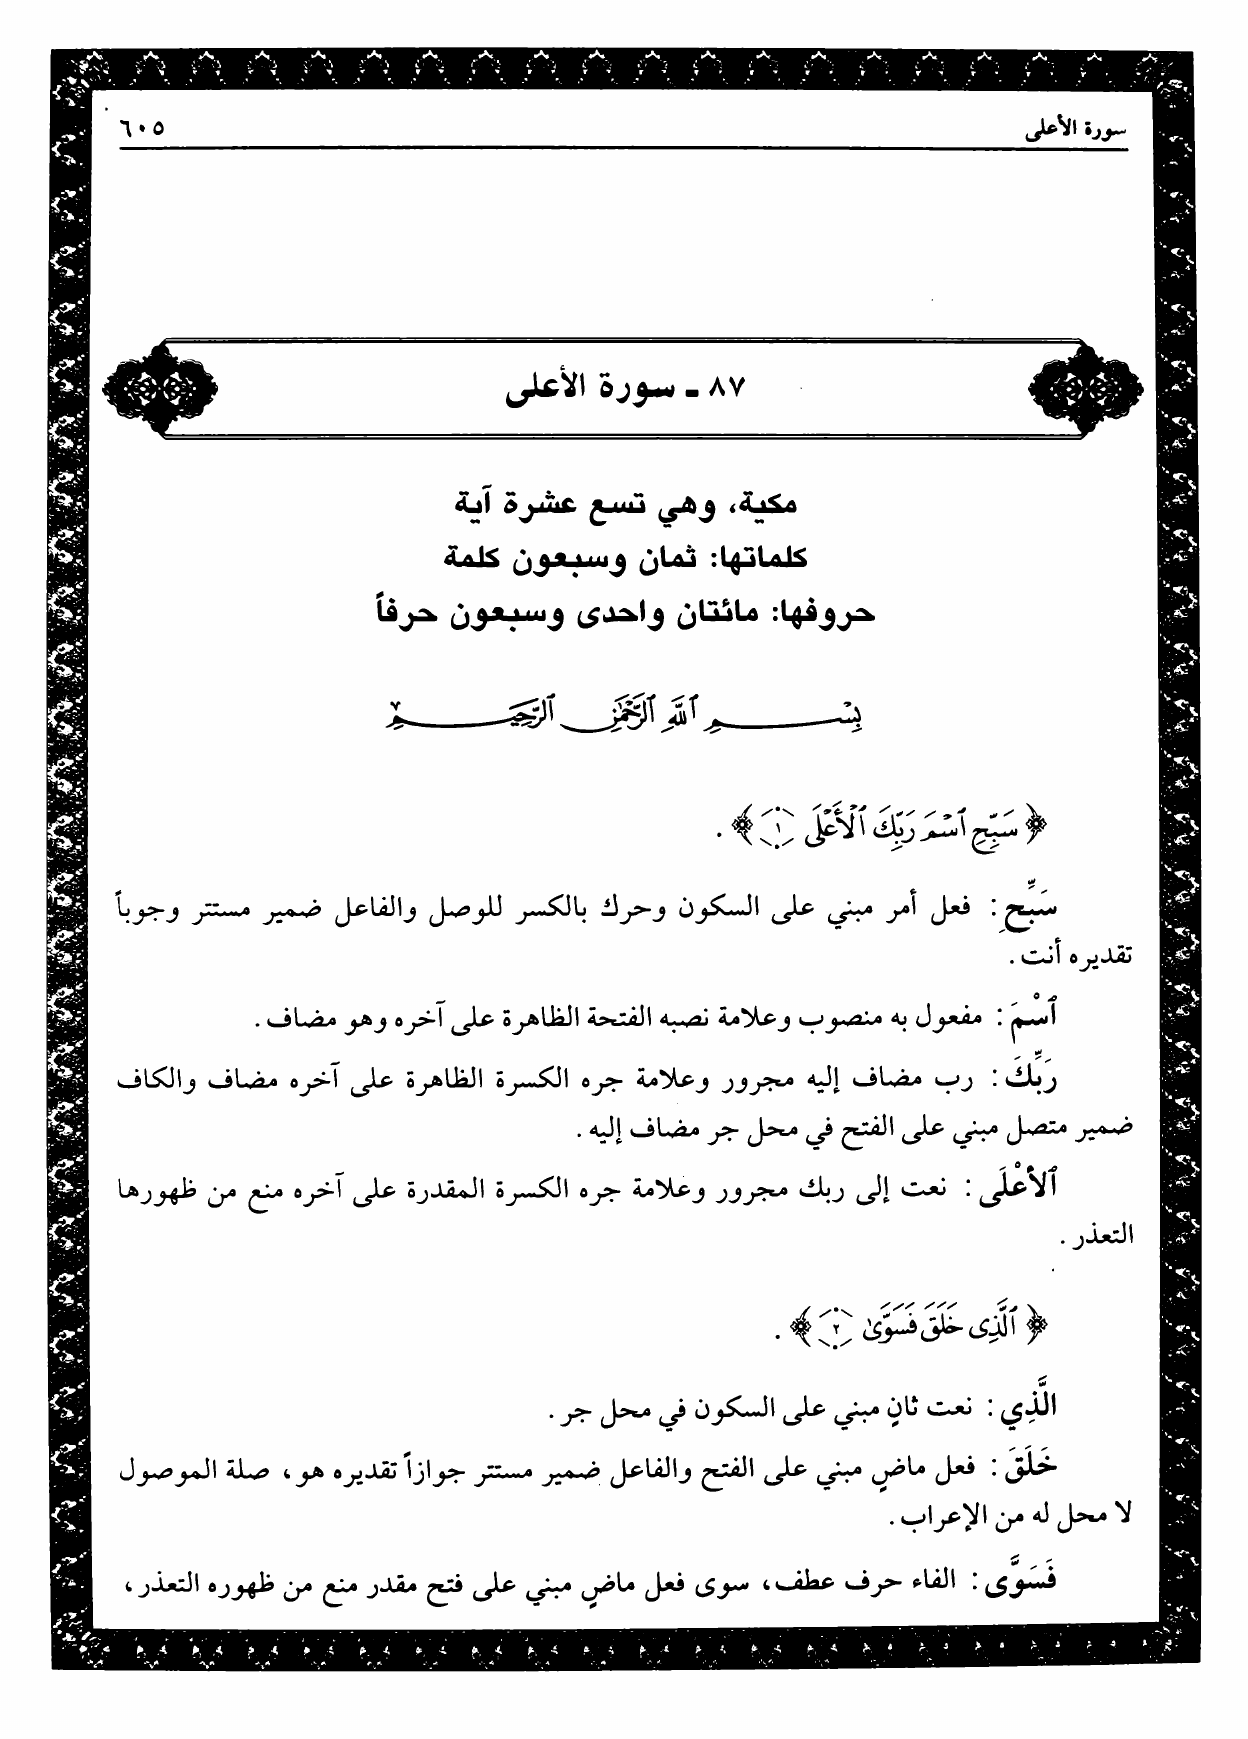 سورة الأعلى
٦٠٥
٨٧ ـ سورة الأعلى
مكية، وهي تسع عشرة آية
كلماتها: ثمان وسبعون كلمة
حروفها: مائتان واحدى وسبعون حرفاً
بِسْمِ ٱللَّهِ ٱلرَّحْمَٰنِ ٱلرَّحِيمِ
﴿ سَبِّحِ ٱسْمَ رَبِّكَ ٱلْأَعْلَى ١ ﴾ .
سَبِّحِ : فعل أمر مبني على السكون وحرك بالكسر للوصل والفاعل ضمير مستتر وجوباً
تقديره أنت .
ٱسْمَ : مفعول به منصوب وعلامة نصبه الفتحة الظاهرة على آخره وهو مضاف .
رَبِّكَ : رب مضاف إليه مجرور وعلامة جره الكسرة الظاهرة على آخره مضاف والكاف
ضمير متصل مبني على الفتح في محل جر مضاف إليه .
ٱلأَعْلَى : نعت إلى ربك مجرور وعلامة جره الكسرة المقدرة على آخره منع من ظهورها
التعذر .
﴿ ٱلَّذِى خَلَقَ فَسَوَّىٰ ٢ ﴾ .
الَّذِي : نعت ثانٍ مبني على السكون في محل جر .
خَلَقَ : فعل ماضٍ مبني على الفتح والفاعل ضمير مستتر جوازاً تقديره هو ، صلة الموصول
لا محل له من الإعراب .
فَسَوَّى : الفاء حرف عطف، سوى فعل ماضٍ مبني على فتح مقدر منع من ظهوره التعذر ،